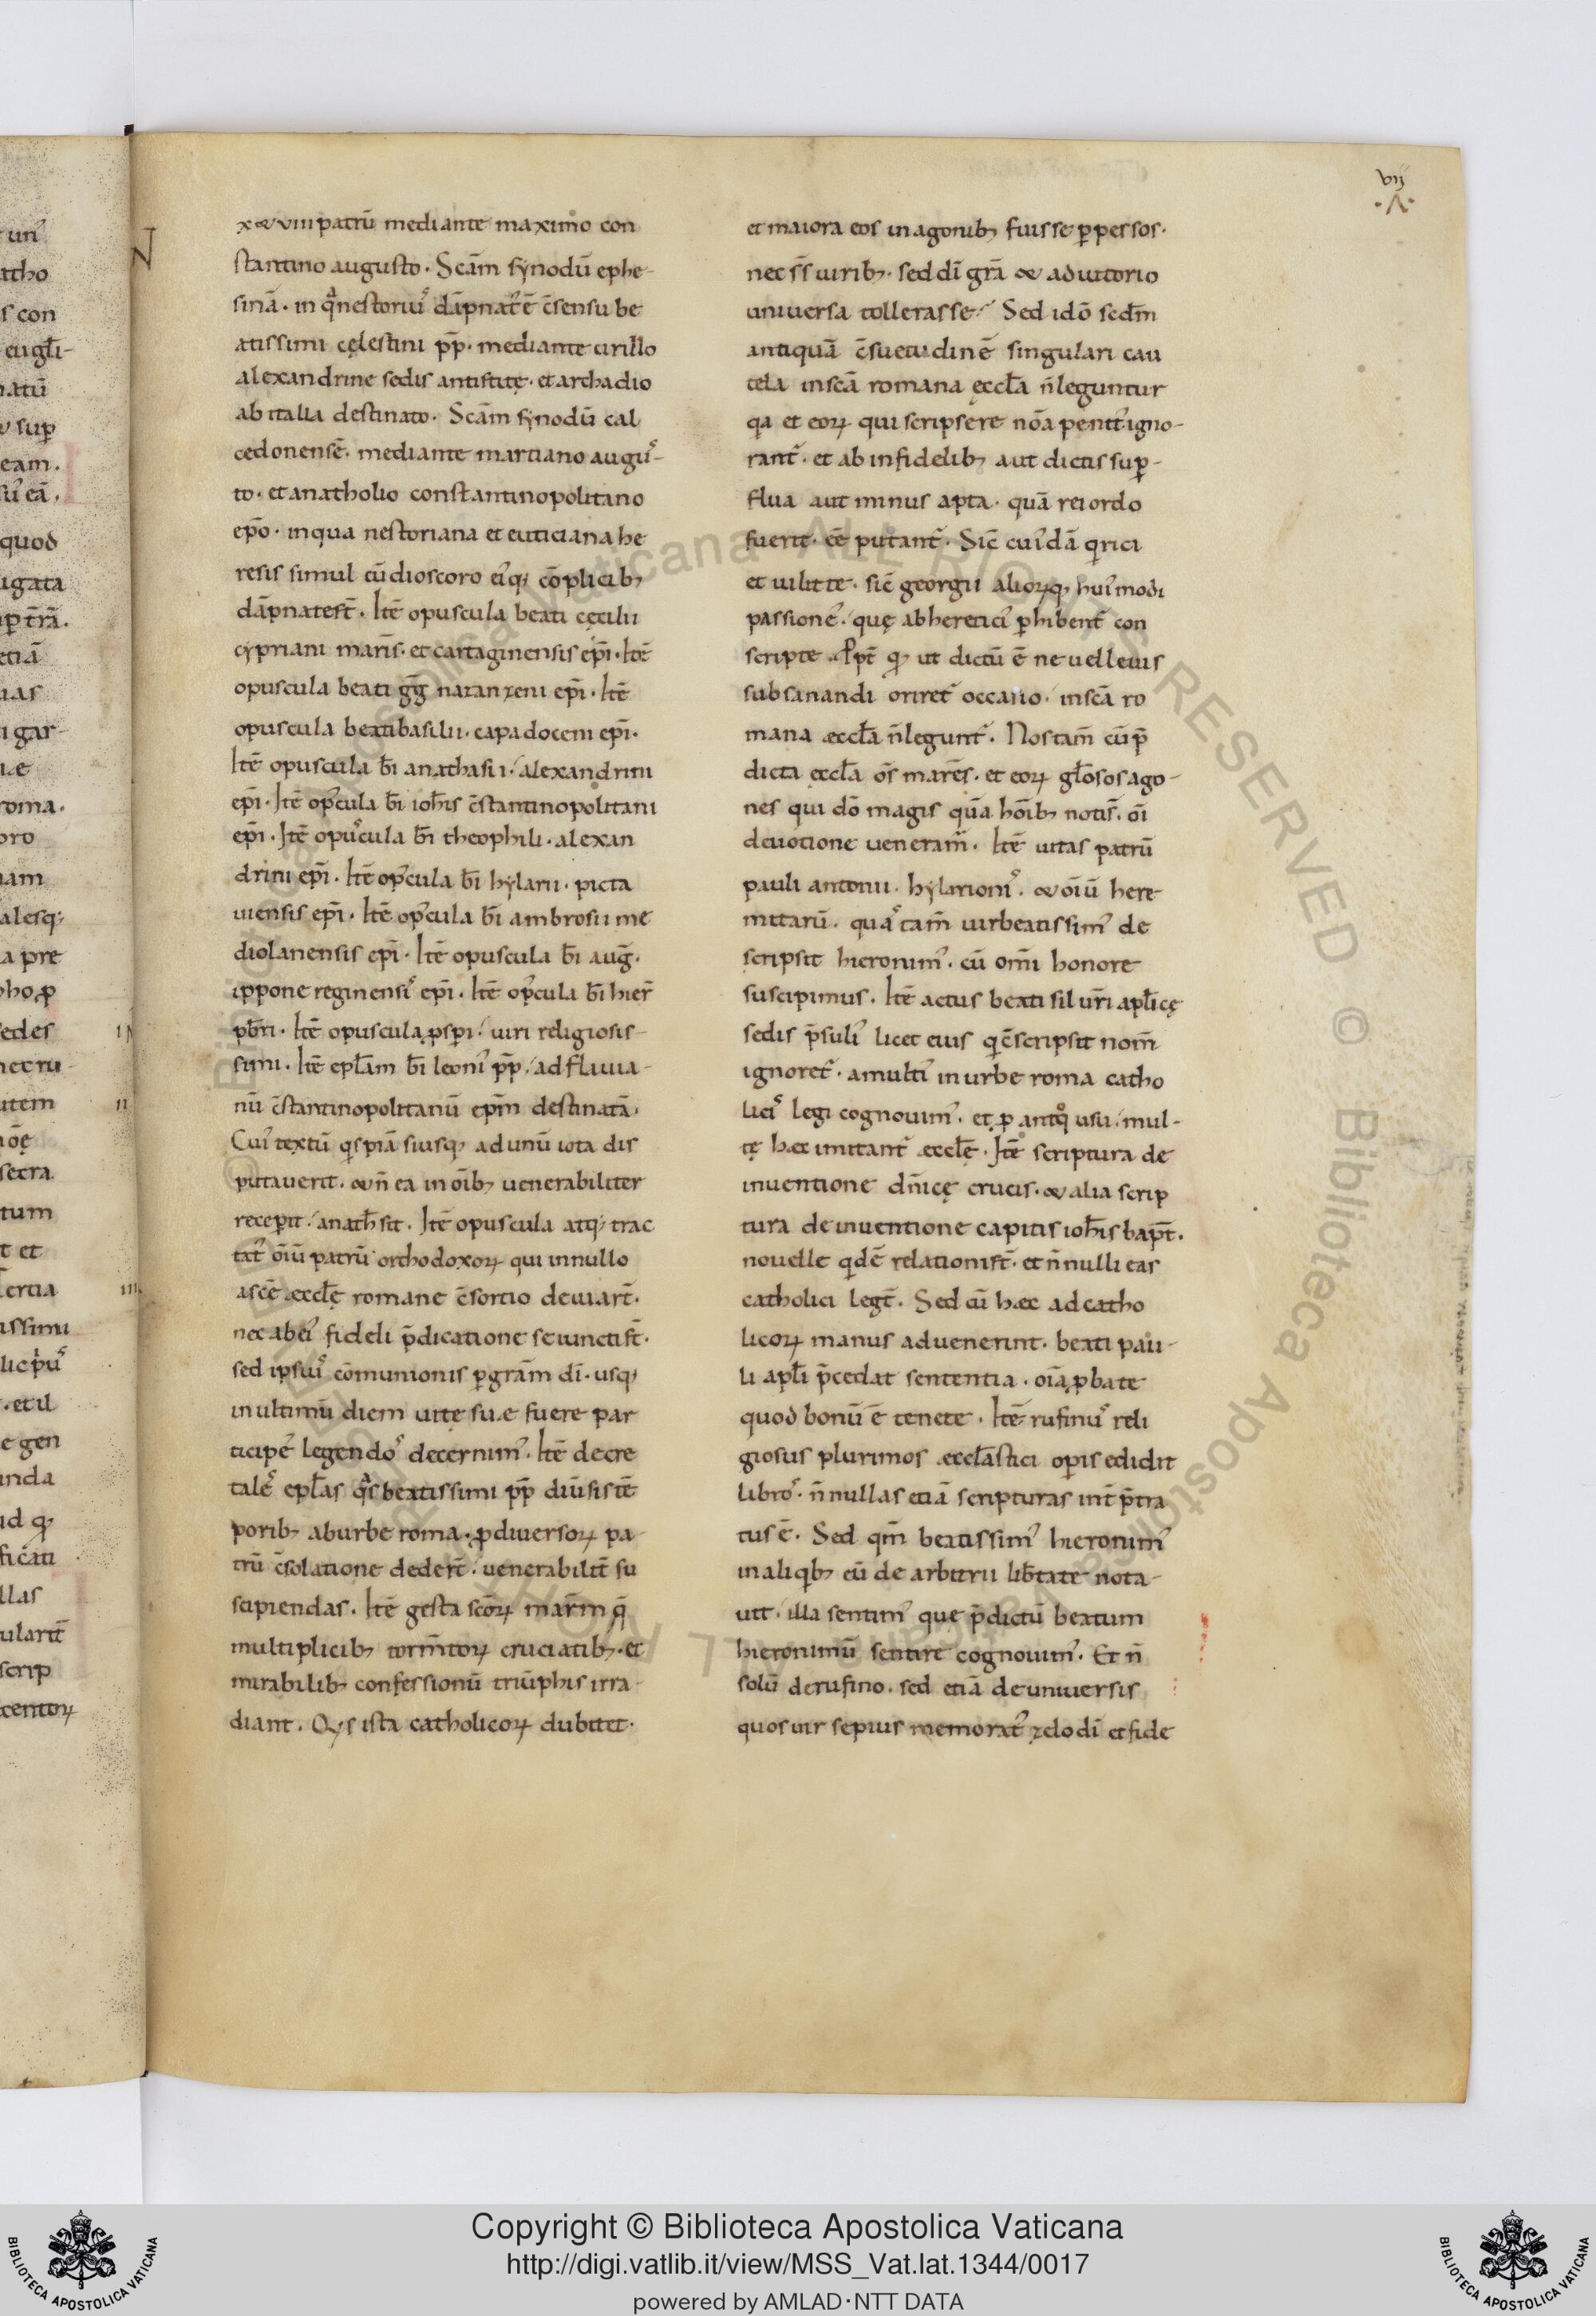 vij
·V·
N
x &viii patrū mediante maximo con
stantino augusto. Scām synodū ephe-
sinā. in qͣ nestoriuſ dāpnatꝰ ē c̄sensu be
atissimi cęlestini pp̄. mediante cirillo
alexandrine sedis antistitę. et archadio
ab italia destinato. Scām synodū cal
cedonensē. mediante martiano auguſ-
to. et anatholio constantinopolitano
ep̄o. in qua nestoriana et euticiana he
resis simul cū dioscoro eiꝰq; cōplicib;
dāpnatest̄. Itē opuscula beati cęcilii
cypriani mar̄is. et cartaginensis ep̄i. Itē
opuscula beati gḡ nazanzeni ep̄i. Itē
opuscula beati basilii. capadoceni ep̄i.
Itē opuscula b̄i anathasii. alexandrini
ep̄i. Itē opꝰcula b̄i ioh̄is c̄stantinopolitani
ep̄i. Itē opuꝰcula b̄i theophili. alexan
drini ep̄i. Itē opꝰcula b̄i hylarii. picta
uiensis ep̄i. Itē opꝰcula b̄i ambrosii me
diolanensis ep̄i. Itē opuscula b̄i auḡ.
ippone reginensiſ ep̄i. Itē opꝰcula b̄i hier̄
pb̄ri. Itē opuscula ꝓsꝑi. uiri religiosis-
simi. Itē ep̄lam b̄i leoniſ pp̄. ad flauia-
nū c̄stantinopolitanū ep̄m destinatā.
Cuiꝰ textū qispiā siusq; ad unū iota dis
putauerit. & n̄ ea in oīb; uenerabiliter
receꝑit. anath̄ sit. Itē opuscula atq; trac
tatꝰ oīū patrū orthodoxoꝝ qui in nullo
a scē æccl̄ę romane c̄sortio deuiar̄t.
nec ab eiꝰ fideli p̄dicatione seiuncti s̄t.
sed ipsiuſ cōmunionis ꝑ grām dī. usq;
in ultimū diem uitę suæ fuere par
ticipeſ legendoſ decernimꝰ. Itē decre
taleſ ep̄las qͣs beatissimi pp̄ diūsis tē
porib; ab urbe roma. ꝓ diuersoꝝ pa
trū c̄solatione deder̄t. uenerabilit̄ su
scipiendas. Itē gesta sc̄oꝝ mar̄m q̄
multiplicib; torm̄toꝝ cruciatib;. et
mirabilib; confessionū triūphis irra-
diant. Qis ista catholicoꝝ dubitet.
et maiora eos in agonib; fuisse ꝑpessos.
nec s̄s uirib;. sed dī grā & adiutorio
uniuersa tollerasse. Sed idō sedm̄
antiquā c̄suetudinē singulari cau
tela in scā romana ęccl̄a n̄ leguntur
qa et eoꝝ qui scripsere nōa penitꝰ igno-
rant̄. et ab infidelib; aut dictis suꝑ-
flua aut minus apta. quā rei ordo
fuerit. eē putant̄. Sic̄ cuiꝰdā qirici
et uilitte. sic̄ georgii alioꝝq; huiꝰmodi
passioneſ. quę ab hereticiſ ꝑhibent̄ con
scripte. Ppt̄ qͩ ut dictū ē ne uel leuis
subsanandi oriret̄ occasio. in scā ro
mana æccl̄a n̄ legunt̄. Nos tam̄ cū p̄
dicta ęccl̄a ōs mar̄es. et eoꝝ gl̄osos ago-
nes qui dō magis quā hōib; noti s̄. oī
deuotione ueneram̄. Itē uitas patrū
pauli antonii. hylarioniſ. & oīū here-
mitarū. quaſ tam̄ uir beatissimꝰ de
scripsit hieronimꝰ. cū om̄i honore
suscipimus. Itē actus beati silur̄i apl̄icę
sedis p̄suliſ licet eius qi c̄scripsit nom̄
ignoret̄. a multiſ in urbe roma catho
liciſ legi cognouimꝰ. et ꝓ antiqͦ usu. mul-
tę hæc imitant̄ æccl̄ę. Itē scriptura de
inuentione dn̄icę crucis. & alia scrip
tura de inuentione capitis ioh̄is bapt̄.
nouelle qidē relationis s̄t. et n̄nulli eas
catholici leḡt. Sed cū hæc ad catho
licoꝝ manus aduenerint. beati pau-
li apl̄i p̄cedat sententia. oīa ꝓbate
quod bonū ē tenete. Itē rufinuſ reli
giosus plurimos æccl̄astici oꝑis edidit
libroſ. n̄nullas etiā scripturas int̄ p̄tra
tus ē. Sed qm̄ beatissimꝰ hieronimꝰ
in aliqib; eū de arbitrii lib̄tate nota-
uit. illa sentimꝰ quę p̄dictū beatum
hieronimū sentire cognouimꝰ. Et n̄
solū de rufino. sed etiā de uniuersis
quos uir sepius memoratꝰ zelo dī et fide
Copyright © Biblioteca Apostolica Vaticana
http://digi.vatlib.it/view/MSS_Vat.lat.1344/0017
powered by AMLAD·NTT DATA